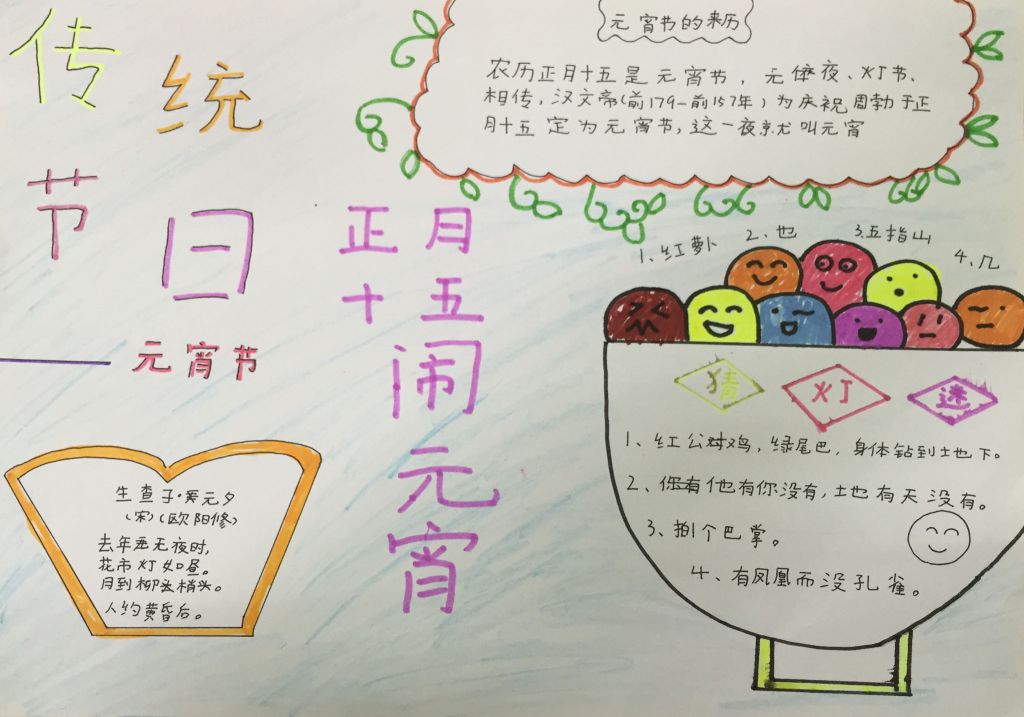 传统
节日
元宵节
正月
十五
闹
元
宵
元宵节的来历
农历正月十五是元宵节，
夜、灯节、
相传，汉文帝(前179-前157年)为庆祝周勃于正
月十五定为元宵节，这一夜就叫元宵
生查子·元夕
(宋)(欧阳修)
去年元夜时，
花市灯如昼。
月到柳头梢头。
人约黄昏后。
1、红萝卜
2、也
3、五指山
4、几
猜灯迷
1、红公鸡，绿尾巴，身体钻到土地下。
2、你有他有你没有，土也有天没有。
3、捌个巴掌。
4、有凤凰而没孔雀。